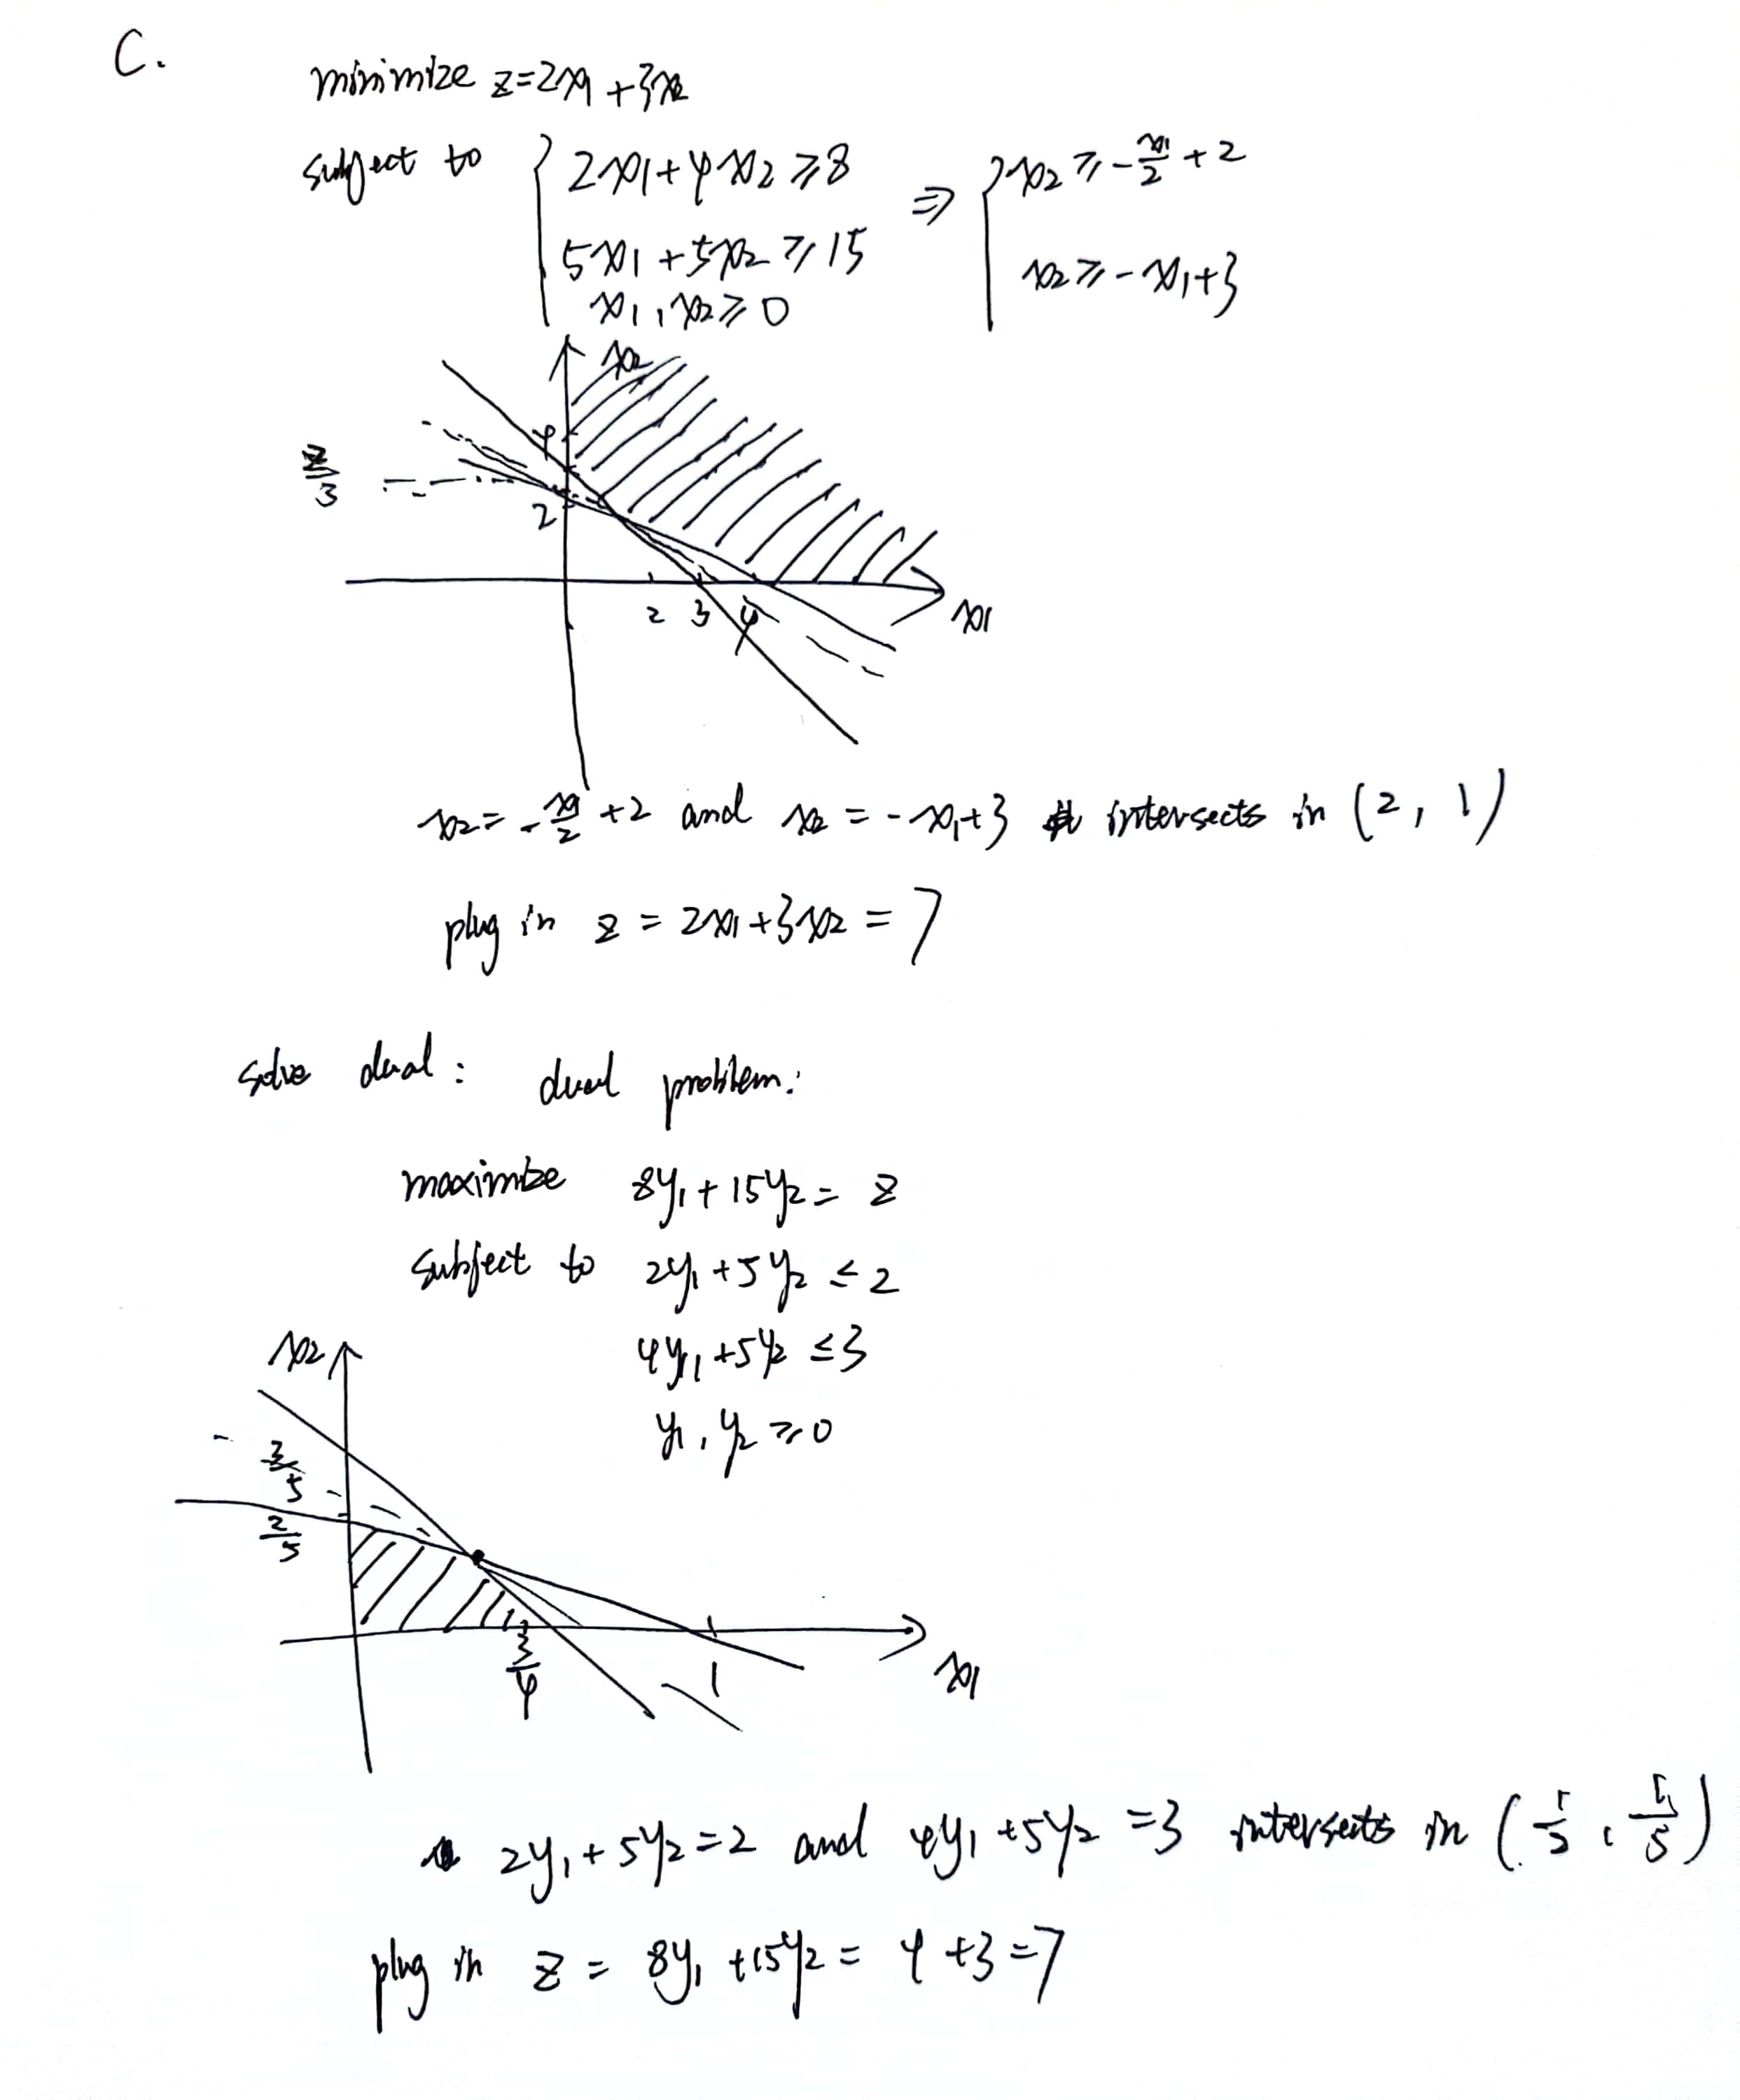 C.
minimize z=2x1+3x2
subject to { 2x1+4x2≥8 ⇒ { x2≥-x1/2+2
5x1+5x2≥15 x2≥-x1+3
x1,x2≥0
x2
4
z/3
2
2 3 4 x1
x2=-x1/2+2 and x2=-x1+3 intersects in (2, 1)
plug in z=2x1+3x2=7
solve dual: dual problem:
maximize 8y1+15y2=z
subject to 2y1+5y2≤2
4y1+5y2≤3
y1,y2≥0
x2
3/5
2/5
3/4 1 x1
2y1+5y2=2 and 4y1+5y2=3 intersects in (1/2, 1/5)
plug in z=8y1+15y2=4+3=7